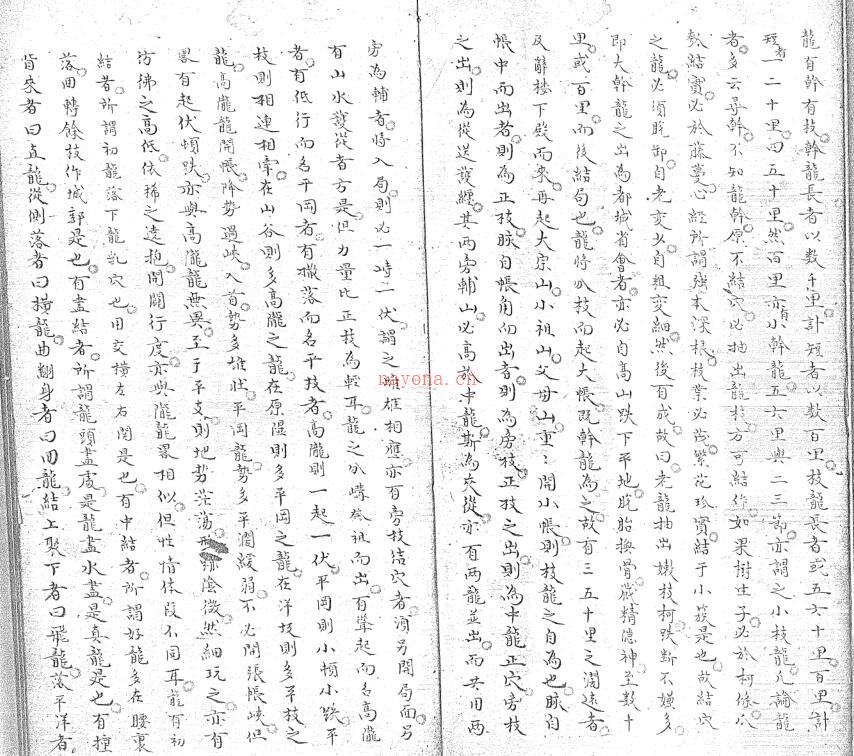 龍有幹有枝幹龍長者以數千里計短者以數百里枝龍長者或五六十里百里計
短者一二十里四五十里然百里亦有小幹龍五六里與二三節亦謂之小枝龍凡論龍
者多云尋幹不知龍幹原不結穴必抽出龍枝方可結作如果樹生子必於柯條
結實必於藤蔓心經所謂強本深根枝葉必茂繁花珍實結于小蔟是也故結穴
之龍必須脫卸自老变少自粗变細然後有成故曰老龍抽出嫩枝柯跌斷不嫌多
即大幹龍之出為都城省會者亦必自高山跌下平地脫胎換骨藏精隱神至數十
里或百里而後結局也龍將分枝而起大帳既幹龍為之故有三五十里之濶遠者
及辭楼下殿而來再起大宗山小祖山父母山重々開小帳則枝龍之自為也脉自
帳中而出者則為正枝脉自帳角而出者則為旁枝正枝之出則為中龍正穴旁枝
之出則為從送護纏其两旁輔山必高於中龍斯為夾從亦有两龍並出而共用两
旁為輔者將入局則必一峙一伏謂之雌雄相應亦有旁枝結穴者須另開局面另
有山水護從者方是但力量比正枝為輕耳龍之分嶂於祖而出有聳起而名高隴
者有低行而名平岡者有撒落而名平枝者高隴則一起一伏平岡則小頓小跌平
枝則相連相牽在山谷則多高隴之龍在原濕則多平岡之龍在洋坂則多平枝之
龍高隴龍開帳降勢過峽入首勢多雄壮平岡龍勢多平濶緩弱不必開張帳峡但
畧有起伏頓跌亦與高隴龍無異至于平支則地勢 蕩 陰徴然細玩之亦有
彷彿之高低依稀之遶抱開閘行度亦與隴龍畧相似但性情体段不同耳龍有初
結者所謂初龍落下龍乳穴也用交横左右関是也有中結者所謂好龍多在腰裏
落囬轉餘枝作城郭是也有盡結者所謂龍頭盡處是龍盡水盡是真龍是也有撞
皆來者曰直龍從側落者曰横龍曲翻身者曰囬龍結上聚下者曰飛龍落平洋者
nayona.cn